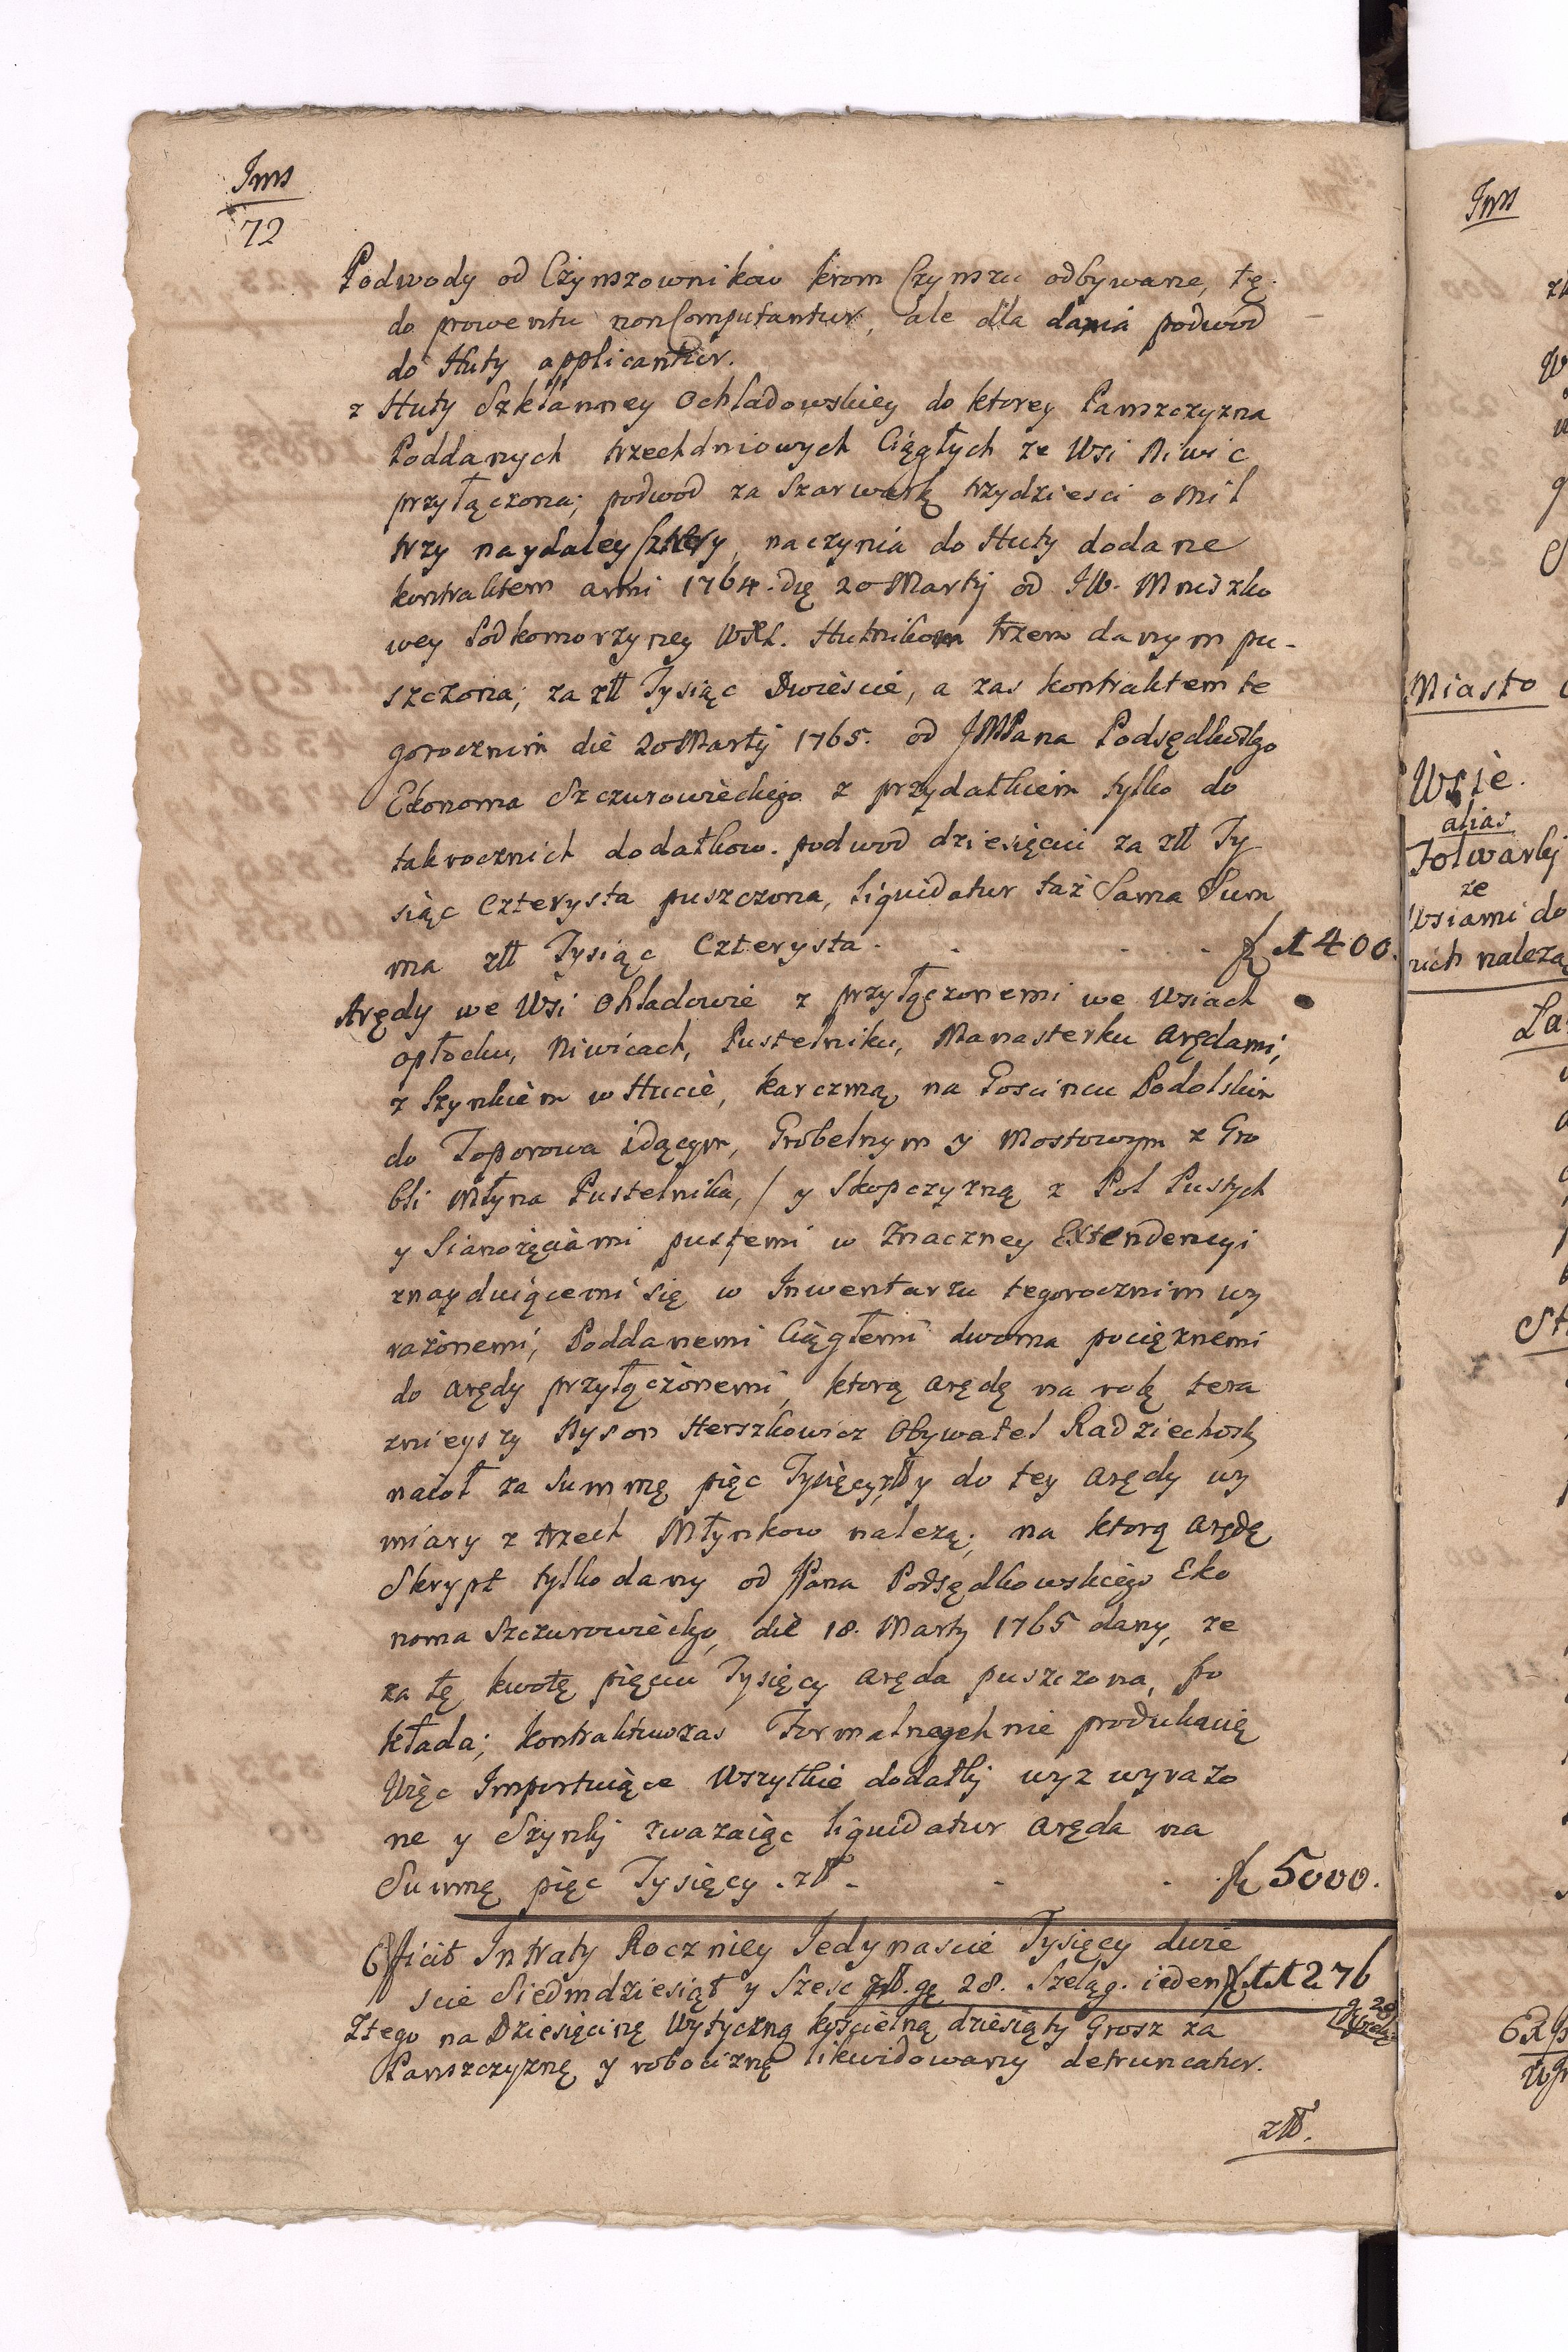 Jms
72
Podwody od Czynszownikow krom Czynszu odbywane, tę
do prowentu nonComputantur, ale dla dania podwod
do Huty applicantur.
z Huty Szklanney Ochladowskiey do ktorey Panszczyzna
Poddanych trzechdniowych Ciągłych ze Wsi Niwic
przyłączona; podwod za Szarwarkę trzydziesci o Mil
trzy naydaley Cztery, naczynia do Huty dodane
kontraktem anni 1764. die 20 Martij od JW. Mniszko
wey Podkomorzyney WXL. Hutnikom trzem danym pu-
szczona; za złł Tysiąc Dwieście, a zas kontraktem te
gorocznim die 20 Martij 1765. od JMPana Podsędkowskgo
Ekonoma Szczurowieckiego z przydatkiem tylko do
takrocznich dodatkow. podwod dziesięciu za złł Ty
siąc Czterysta puszczona, liquidatur taż Sama Sum
ma złł Tysiąc Czterysta. fl 1400.
Arędy we Wsi Ohladowie z przyłączonemi we Wsiach
opłocku, Niwicach, Pustelniku, Manasterku arędami,
z Szynkiem w Hucie, karczmą, na Goscincu Podolskim
do Toporowa idącym, Grobelnym y Mostowym z Gro
bli Młyna Pustelnika, / y Skopczyzną z Pol Pustych
y Sianożęciami pustemi w Znaczney Extendencyi
znayduiącemi się w Inwentarzu tegorocznim wy
rażonemi, Poddanemi Ciągłemi dwoma pociężnemi
do arędy przyłączonemi, ktorą arędę na rok tera
znieyszy Nyson Herszkowicz Obywatel Radziechosk
naioł za Summę pięc Tysięcy złł y do tey arędy wy
miary z trzech Młynkow nalezą; na ktorą arędę
Skrypt tylko dany od JPana Podsędkowskiego Eko
noma Szczurowieckgo, die 18. Marty 1765 dany, ze
za tę kwotę pięciu Tysięcy aręda puszczona, po
kłada; kontraktuwzas Formalnegoh nie produkuię
Więc Importuiące Wszytkie dodatki wyz wyrazo
ne y Szynki zwazaiąc liquidatur aręda na
Summę pięc Tysięcy. złł. fl 5000.
Efficit Intraty Roczniey Jedynascie Tysięcy dwie
scie Siedmdziesiąt y Szesc złł. gr 28. Szeląg. ieden fl 11276
g. 28
Z tego na Dziesięcinę Wytyczną kościelną dziesiąty Grosz za
Panszczyznę y robociznę likwidowany detruncatur.
złł.
Jms
Miasto
Wsie.
alias
Folwarki
ze
Wsiami do
nich nalezą